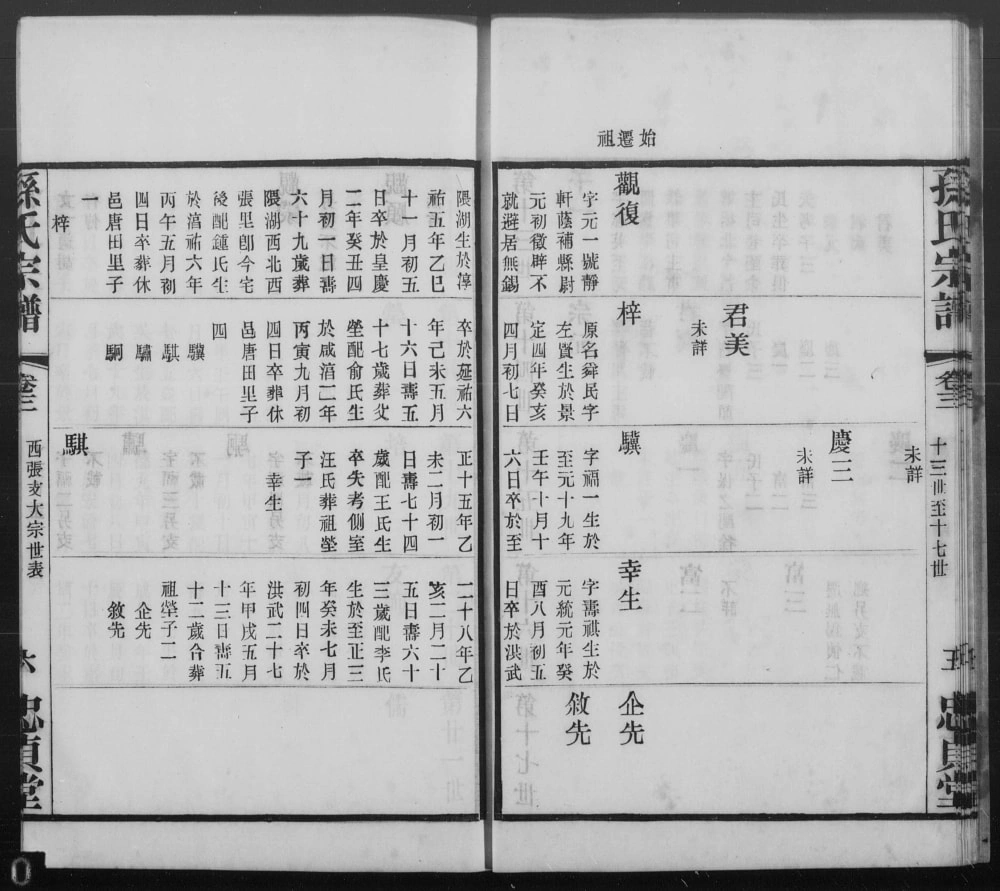 始遷祖
孫氏宗譜
卷三
十三世至十七世
五
忠貞堂
觀復
字元一號靜
軒蔭補縣尉
元初徵辟不
就避居無錫
君美
未詳
梓
原名舜民字
左賢生於景
定四年癸亥
四月初七日
未詳
慶三
未詳
驥
字福一生於
至元十九年
壬午十月十
六日卒於至
幸生
字壽祺生於
元統元年癸
酉八月初五
日卒於洪武
企先
敘先
隈湖生於淳
祐五年乙巳
十一月初五
日卒於皇慶
二年癸丑四
月初一日壽
六十九歲葬
隈湖西北西
張里卽今宅
後配鍾氏生
於淳祐六年
丙午五月初
四日卒葬休
邑唐田里子
梓
卒於延祐六
年己未五月
十六日壽五
十七歲葬父
塋配俞氏生
於咸淳二年
丙寅九月初
四日卒葬休
邑唐田里子
四
驥
騏
驌
駉
正十五年乙
未二月初一
日壽七十四
歲配王氏生
卒失考側室
汪氏葬祖塋
子一
幸生
騏
二十八年乙
亥二月二十
五日壽六十
三歲配李氏
生於至正三
年癸未七月
初四日卒於
洪武二十七
年甲戌五月
十三日壽五
十二歲合葬
祖塋子二
企先
敘先
孫氏宗譜
卷三
西張支大宗世表
六
忠貞堂